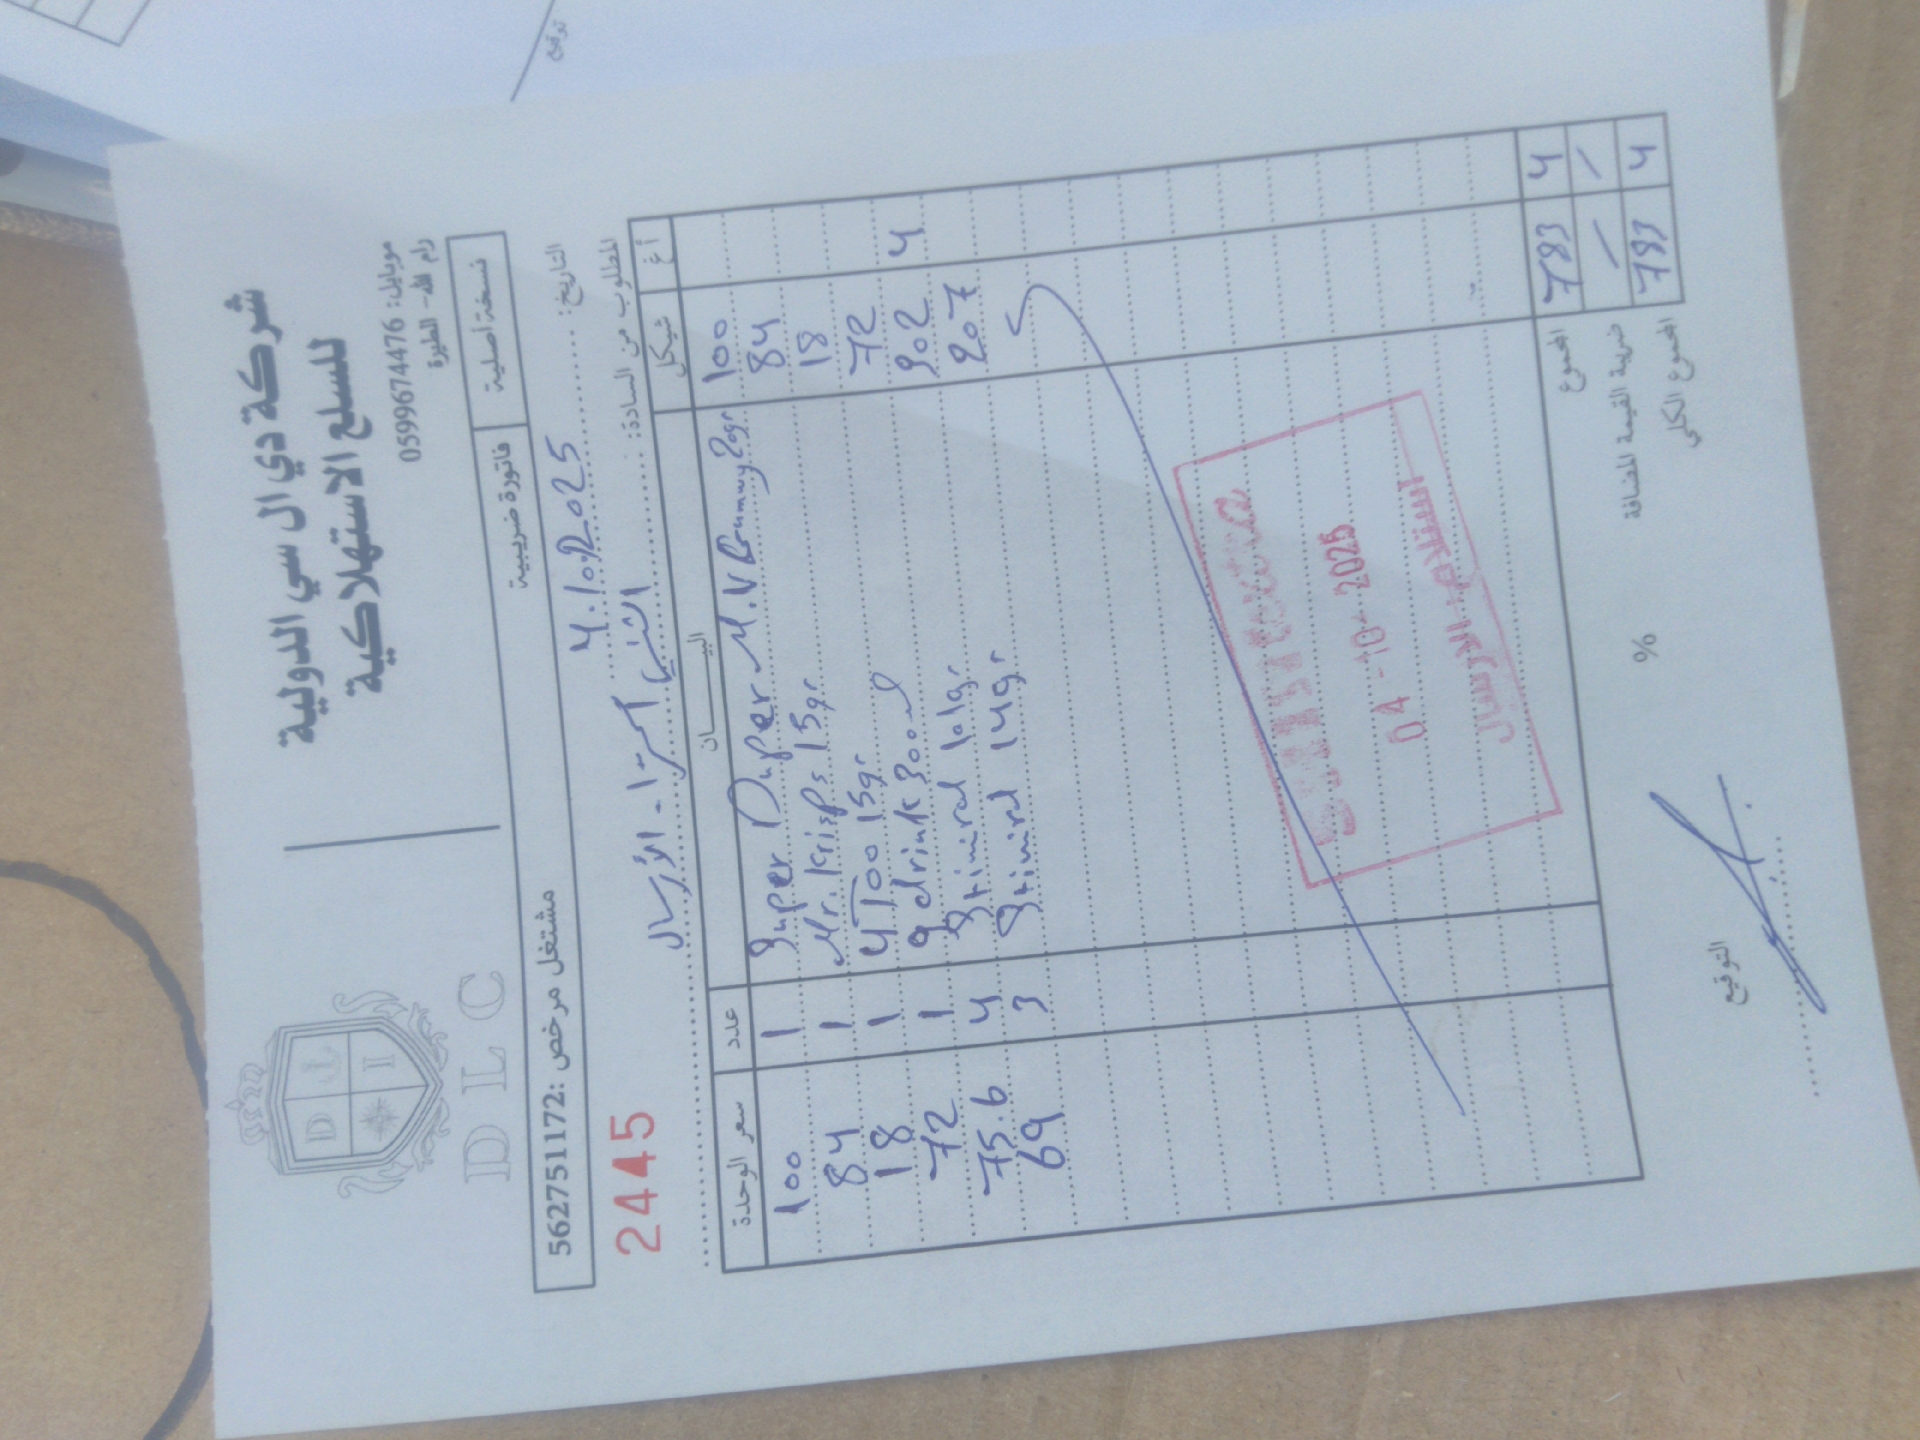 شركة دي ال سي الدولية
للسلع الاستهلاكية
موبايل: 0599674476
رام الله - الطيرة
D I
D L C
مشتغل مرخص: 562751172
فاتورة ضريبية
نسخة اصلية
2445
التاريخ: 4.10.2025
المطلوب من السادة: اكسترا - الأرسال
سعر الوحدة عدد البيـــــان شيكل أغ
100 1 Super Duper M.V 20gr 100
84 1 Mr. Krisps 15gr 84
18 1 4Too 15gr 18
72 1 drink 300ml 72
75.6 4 Stimirol 101gr 302 4
69 3 Stimirol 14gr 207
04 -10- 2025
استلام الارسال
المجموع 783 4
ضريبة القيمة المضافة % / /
المجموع الكلي 783 4
التوقيع
توقيع